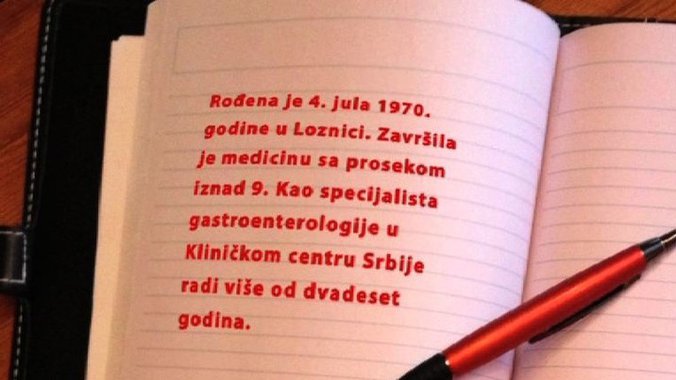 Rođena je 4. jula 1970.
godine u Loznici. Završila
je medicinu sa prosekom
iznad 9. Kao specijalista
gastroenterologije u
Kliničkom centru Srbije
radi više od dvadeset
godina.